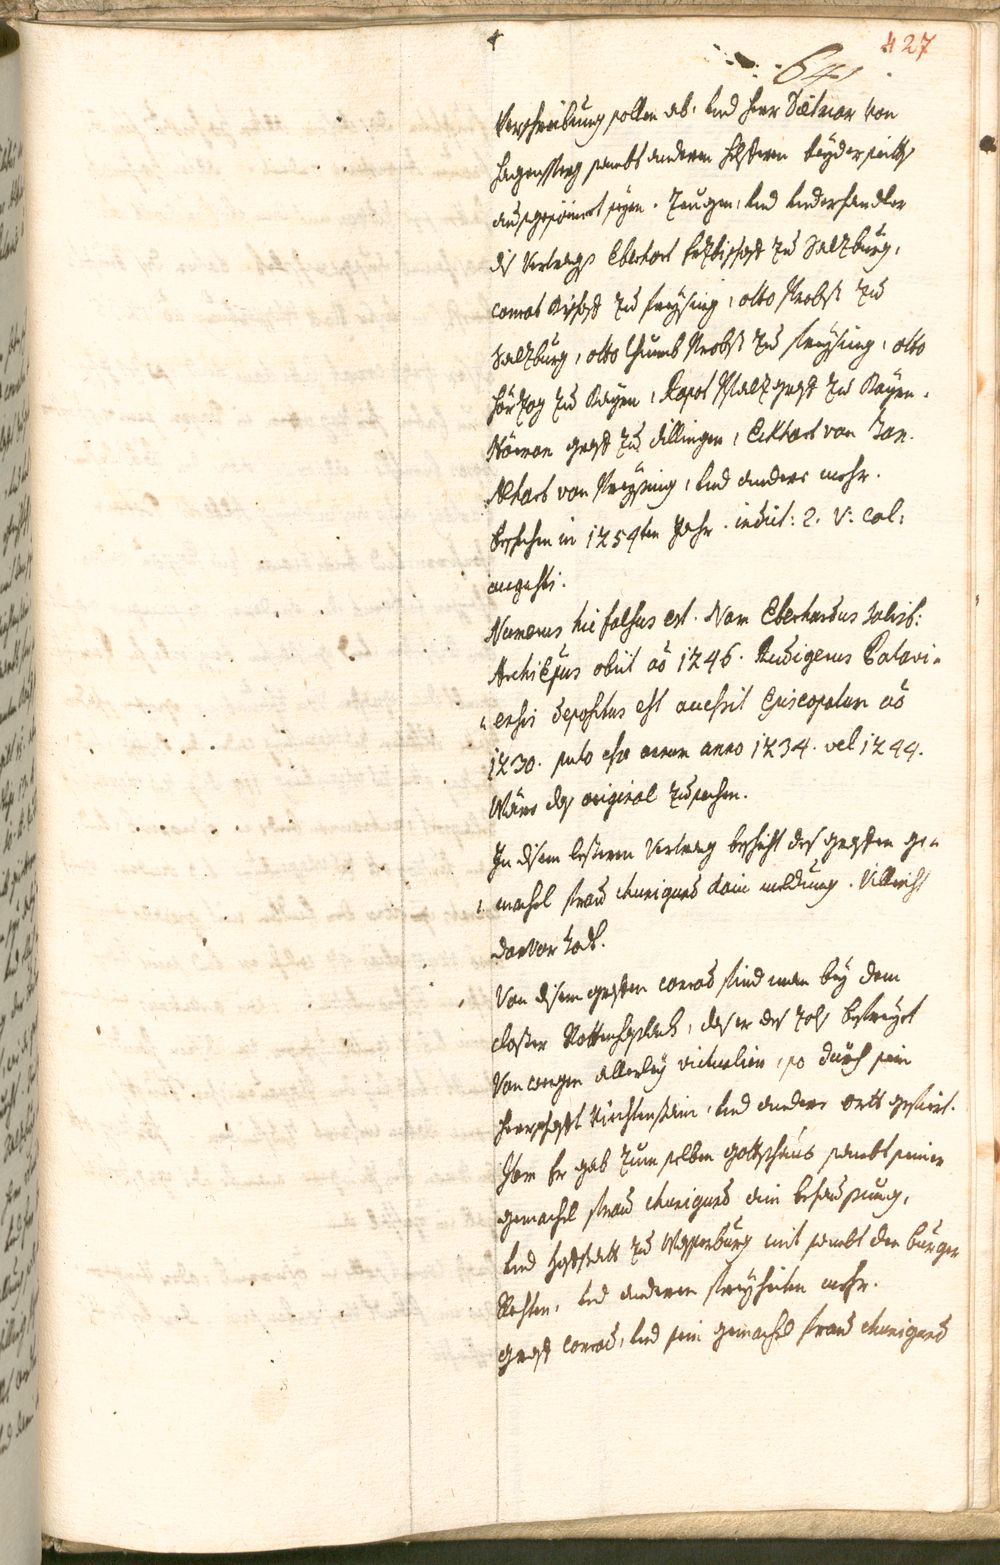 427
641.
Verschreibung sollen ab, und Herr Dietmar von
Hagenperg sambt anderen Hßteren beyderseiths
ausgesönnet seyen. Zeugen, und underhandler
dis Vertrags Eberhart Erzbischoff zu Salzburg,
Conrat Bischoff zu Freysing, otto Probst zu
Salzburg, otto Thumb Probst zu Freysing, otto
Hörzog zu Bayrn, Rapot Pfalzgraff zu Bayrn.
Hörman graff zu dillingen, Eckhart von
Albart von Preysing, und anders mehr.
beschehen im 1254ten Jahr. indict: 2. V: Cal:
augusti.
Numerus hic falsus est. Nam Eberhardus Salisb:
Archiepus obiit aõ 1246. Rudigerus Patavi-
ensis depositus est Episcopatum aõ
1230. puto esse annum anno 1234. vel 1244.
Wäre das original zu sechen.
In disem lesteren Vertrag beschicht des graffen ge-
machel Fraus Kunigund kain meldung. Villeicht
darvor todt.
Von disem graffen Conrad find man bey dem
closter Rottenhaslach, das er des Zols befreyet
Von wegen allerley victualien, so durch sein
Herrschafft Liechtenstain, und anders orts gefiert.
Item Er gab zum selben gottshaus sambt seiner
gemachel Fraus Kunigund ein behausung,
und Hoffstatt zu Wasserburg mit sambt den burger
Rechten, und anderen freyheiten mehr.
Graff Conrad, und sein gemachel Fraus Kunigund